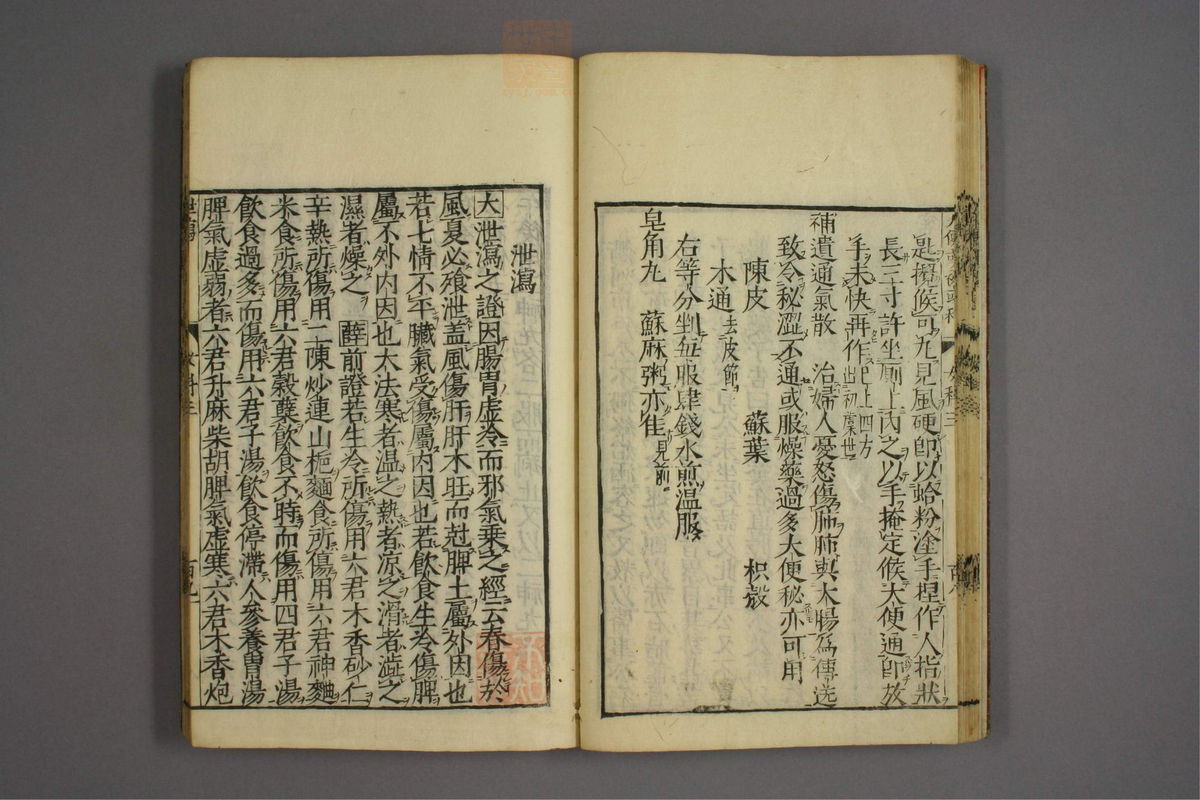 匙攪候可丸見風硬即以蛤粉塗手捏作人指狀
長三寸許坐廁上內之以手掩定候大便通即放
手未快再作已上四方出初虞世
補遺通氣散　治婦人憂怒傷肺肺與大腸為傳送
致令秘澀不通或服燥藥過多大便秘亦可用
陳皮　蘇葉　枳殼
木通去皮節
右等分剉每服肆錢水煎溫服
皂角丸　蘇麻粥亦佳見前
泄瀉
大泄瀉之證因腸胃虛冷而邪氣乘之經云春傷於
風夏必飱泄盖風傷肝肝木旺而尅脾土屬外因也
若七情不平臟氣受傷屬內因也若飲食生冷傷脾
屬不外內因也大法寒者溫之熱者凉之滑者澁之
濕者燥之　薛前證若生冷所傷用六君木香砂仁
辛熱所傷用二陳炒連山梔麵食所傷用六君神麯
米食所傷用六君穀蘖飲食不時而傷用四君子湯
飲食過多而傷用六君子湯飲食停滯人參養胃湯
脾氣虛弱者六君升麻柴胡脾氣虛寒六君木香炮